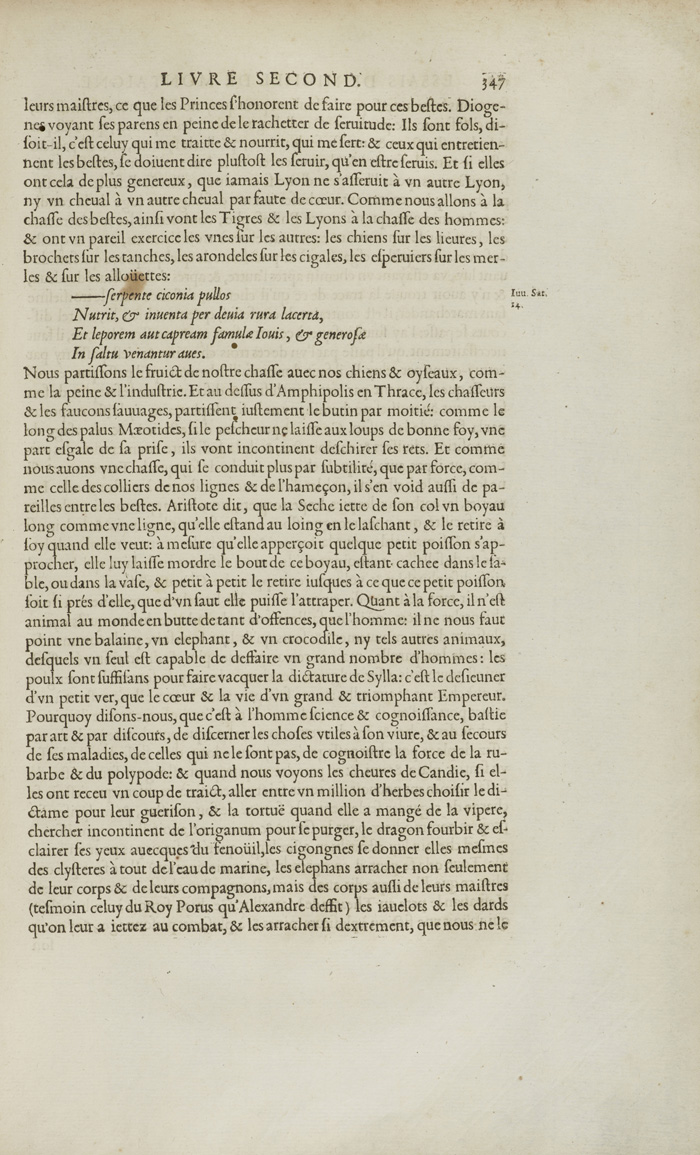 LIVRE SECOND. 347
leurs maiſtres, ce que les Princes ſ'honorent de faire pour ces beſtes. Dioge-
nes voyant ſes parens en peine de le rachetter de ſeruitude: Ils ſont fols, di-
ſoit-il, c'eſt celuy qui me traitte & nourrit, qui me ſert: & ceux qui entretien-
nent les beſtes, ſe doiuent dire pluſtoſt les ſeruir, qu'en eſtre ſeruis. Et ſi elles
ont cela de plus genereux, que iamais Lyon ne s'aſſeruit à vn autre Lyon,
ny vn cheual à vn autre cheual par faute de cœur. Comme nous allons à la
chaſſe des beſtes, ainſi vont les Tigres & les Lyons à la chaſſe des hommes:
& ont vn pareil exercice les vnes ſur les autres: les chiens ſur les lieures, les
brochets ſur les tanches, les arondeles ſur les cigales, les eſperuiers ſur les mer-
les & ſur les alloüettes:
——ſerpente ciconia pullos
Iuu. Sat.
14.
Nutrit, & inuenta per deuia rura lacerta,
Et leporem aut capream famulæ Iouis, & generoſæ
In ſaltu venantur aues.
Nous partiſſons le fruict de noſtre chaſſe auec nos chiens & oyſeaux, com-
me la peine & l'induſtrie. Et au deſſus d'Amphipolis en Thrace, les chaſſeurs
& les faucons ſauuages, partiſſent iuſtement le butin par moitié: comme le
long des palus Mæotides, ſi le peſcheur ne laiſſe aux loups de bonne foy, vne
part eſgale de ſa priſe, ils vont incontinent deſchirer ſes rets. Et comme
nous auons vne chaſſe, qui ſe conduit plus par ſubtilité, que par force, com-
me celle des colliers de nos lignes & de l'hameçon, il s'en void auſſi de pa-
reilles entre les beſtes. Ariſtote dit, que la Seche iette de ſon col vn boyau
long comme vne ligne, qu'elle eſtand au loing en le laſchant, & le retire à
ſoy quand elle veut: à meſure qu'elle apperçoit quelque petit poiſſon s'ap-
procher, elle luy laiſſe mordre le bout de ce boyau, eſtant cachee dans le ſa-
ble, ou dans la vaſe, & petit à petit le retire iuſques à ce que ce petit poiſſon
ſoit ſi prés d'elle, que d'vn ſaut elle puiſſe l'attraper. Quant à la force, il n'eſt
animal au monde en butte de tant d'offences, que l'homme: il ne nous faut
point vne balaine, vn elephant, & vn crocodile, ny tels autres animaux,
deſquels vn ſeul eſt capable de deffaire vn grand nombre d'hommes: les
poulx ſont ſuffiſans pour faire vacquer la dictature de Sylla: c'eſt le deſieuner
d'vn petit ver, que le cœur & la vie d'vn grand & triomphant Empereur.
Pourquoy diſons-nous, que c'eſt à l'homme ſcience & cognoiſſance, baſtie
par art & par diſcours, de diſcerner les choſes vtiles à ſon viure, & au ſecours
de ſes maladies, de celles qui ne le ſont pas, de cognoiſtre la force de la ru-
barbe & du polypode: & quand nous voyons les cheures de Candie, ſi el-
les ont receu vn coup de traict, aller entre vn million d'herbes choiſir le di-
ctame pour leur gueriſon, & la tortuë quand elle a mangé de la vipere,
chercher incontinent de l'origanum pour ſe purger, le dragon fourbir & eſ-
clairer ſes yeux auecques du fenoüil, les cigongnes ſe donner elles meſmes
des clyſteres à tout de l'eau de marine, les elephans arracher non ſeulement
de leur corps & de leurs compagnons, mais des corps auſſi de leurs maiſtres
(teſmoin celuy du Roy Porus qu'Alexandre deffit) les iauelots & les dards
qu'on leur a iettez au combat, & les arracher ſi dextrement, que nous ne le